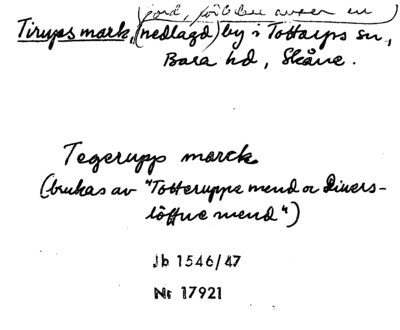 jord,
Tirups mark, (nedlagd) by i Tottarps sn,
Bara hd, Skåne.
Tegerupp marck
(brukas av "Totteruppe mend oc
mend")
Jb 1546/47
Nr 17921